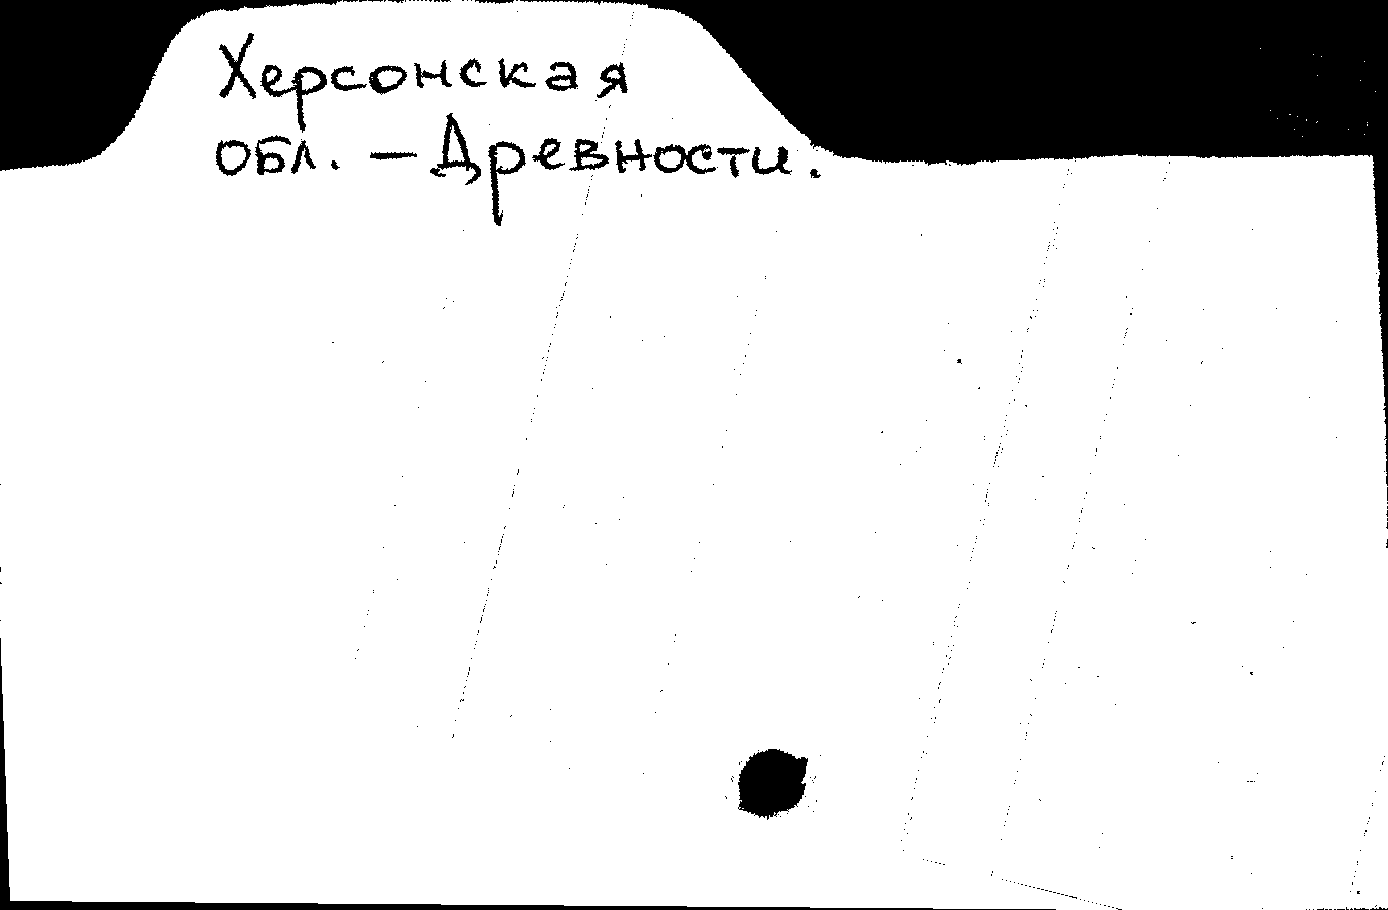 Херсонская
обл. – Древности.